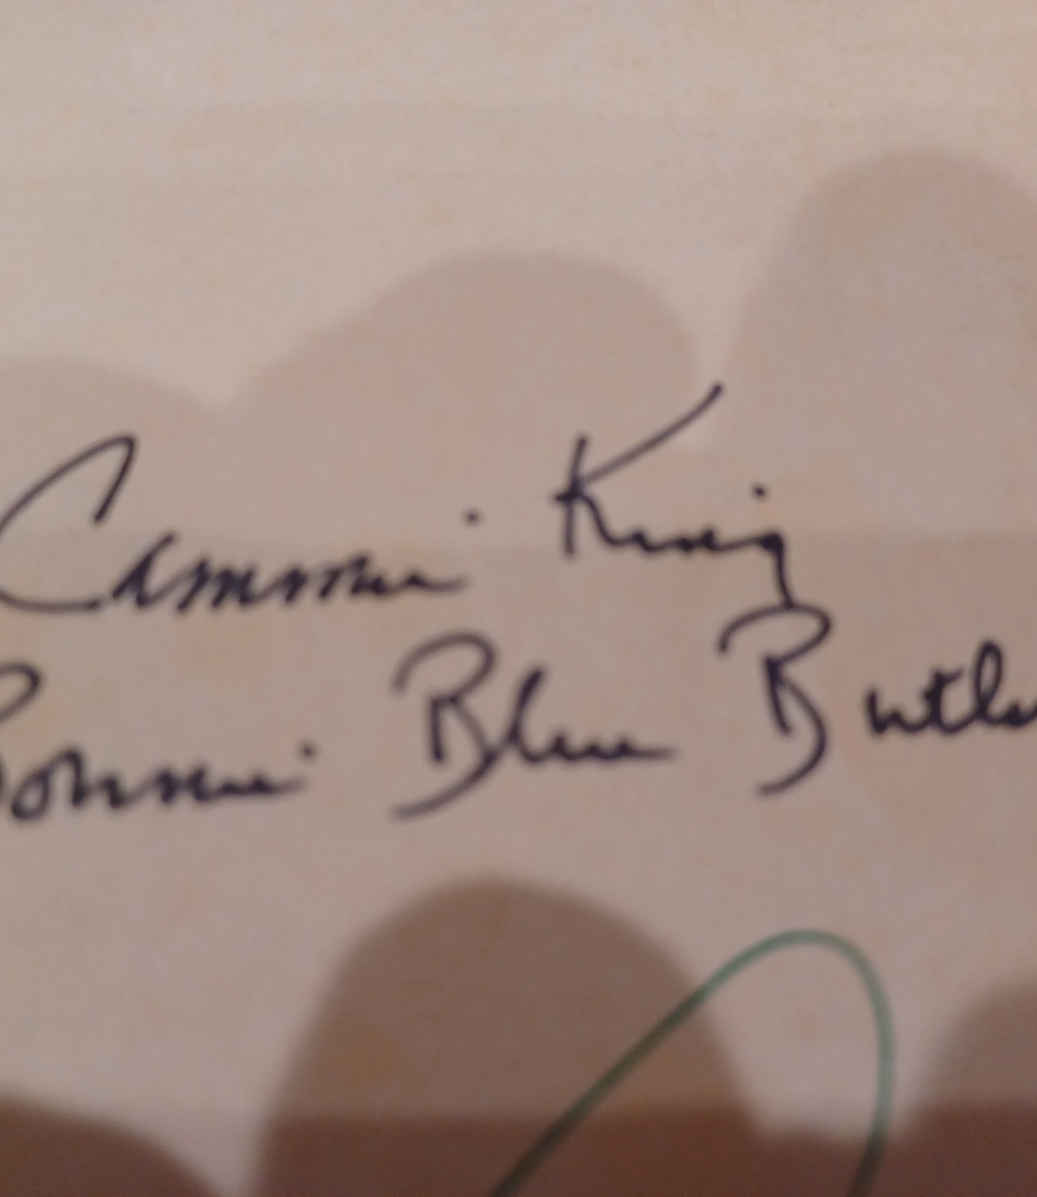 Cammie King
Bonnie Blue Butler